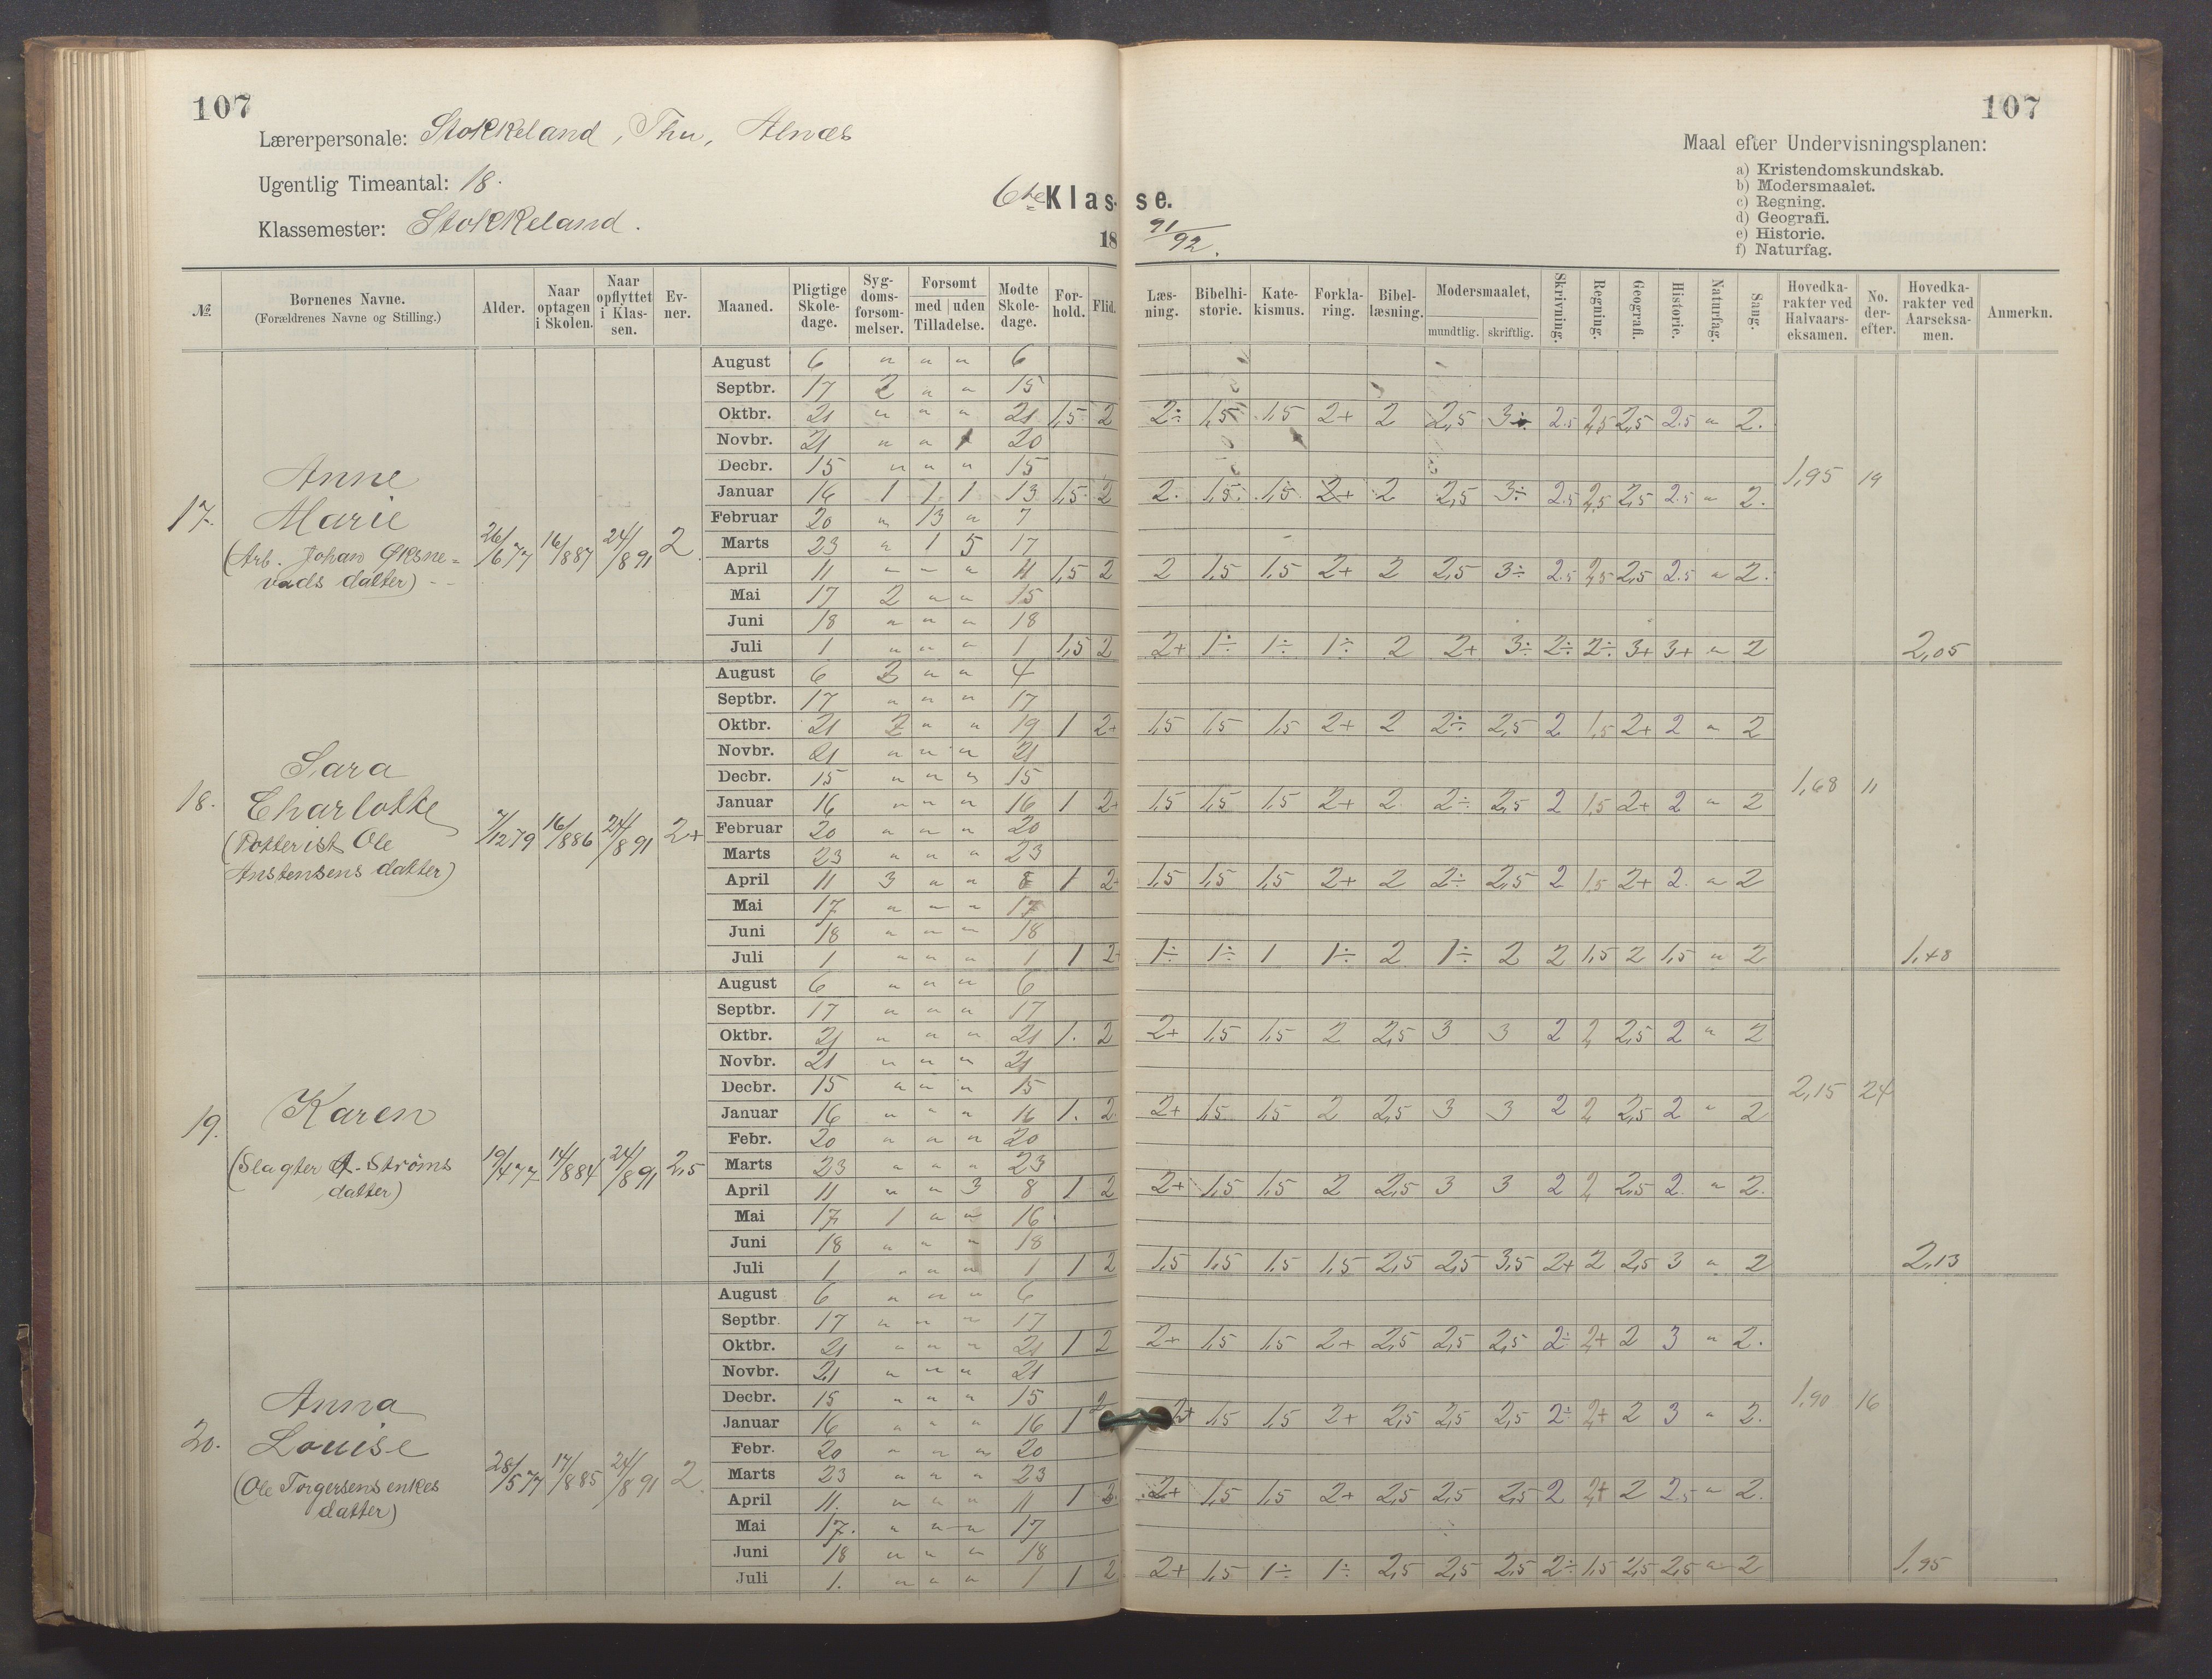 107
107
Lærerpersonale: Stokkeland, Thu, Alnæs
Ugentlig Timeantal: 18.
Klassemester: Stokkeland.
6te Klasse.
18 91/92.
Maal efter Undervisningsplanen:
a) Kristendomskundskab.
b) Modersmaalet.
c) Regning.
d) Geografi.
e) Historie.
f) Naturfag.
№ | Børnenes Navne. (Forældrenes Navne og Stilling.) | Alder. | Naar optagen i Skolen. | Naar opflyttet i Klassen. | Evner. | Maaned. | Pligtige Skoledage. | Sygdomsforsømmelser. | Forsømt med uden Tilladelse. | Mødte Skoledage. | Forhold. | Flid. | Læsning. | Bibelhistorie. | Katekismus. | Forklaring. | Bibellæsning. | Modersmaalet, mundtlig. skriftlig. | Skrivning. | Regning. | Geografi. | Historie. | Naturfag. | Sang. | Hovedkarakter ved Halvaarseksamen. | No. derefter. | Hovedkarakter ved Aarseksamen. | Anmerkn.
17. Anne Marie (Arb. Johan Øksnevads datter) 26/6 77 16/8 87 24/8 91 2.
August 6 " " " 6
Septbr. 17 2 " " 15
Oktbr. 21 " " " 21 1,5 2 2÷ 1,5 1,5 2+ 2 2,5 3÷ 2.5 2,5 2,5 2.5 " 2.
Novbr. 21 " " 1 20
Decbr. 15 " " " 15
Januar 16 1 1 1 13 1,5 2 2. 1,5 1,5 2+ 2 2,5 3÷ 2.5 2,5 2,5 2.5 " 2. 1,95 19
Februar 20 " 13 " 7
Marts 23 " 1 5 17
April 11 " " " 11 1,5 2 2 1,5 1,5 2+ 2 2,5 3÷ 2.5 2,5 2,5 2.5 " 2.
Mai 17 2 " " 15
Juni 18 " " " 18
Juli 1 " " " 1 1,5 2 2+ 1÷ 1÷ 1÷ 2 2+ 3÷ 2÷ 2÷ 3+ 3+ " 2 2,05
18. Sara Charlotte (Potterist Ole Anstensens datter) 7/12 79 16/8 86 24/8 91 2+
August 6 2 " " 4
Septbr. 17 " " " 17
Oktbr. 21 2 " " 19 1 2+ 1,5 1,5 1,5 2+ 2 2÷ 2,5 2 1,5 2+ 2 " 2
Novbr. 21 " " " 21
Decbr. 15 " " " 15
Januar 16 " " " 16 1 2+ 1,5 1,5 1,5 2+ 2 2÷ 2,5 2 1,5 2+ 2 " 2 1,68 11
Februar 20 " " " 20
Marts 23 " " " 23
April 11 3 " " 8 1 2+ 1,5 1,5 1,5 2+ 2 2÷ 2,5 2 1,5 2+ 2. " 2
Mai 17 " " " 17
Juni 18 " " " 18
Juli 1 " " " 1 1 2+ 1÷ 1÷ 1 1÷ 2 1÷ 2 2 1,5 2 1,5 " 2 1,48
19. Karen (Slagter A. Strøms datter) 19/4 77 14/8 84 24/8 91 2,5
August 6 " " " 6
Septbr. 17 " " " 17
Oktbr. 21 " " " 21 1. 2 2+ 1,5 1,5 2 2,5 3 3 2 2 2,5 2 " 2
Novbr. 21 " " " 21
Decbr. 15 " " " 15
Januar 16 " " " 16 1. 2 2+ 1,5 1,5 2 2,5 3 3 2 2 2,5 2 " 2 2,15 24
Febr. 20 " " " 20
Marts 23 " " " 23
April 11 " " 3 8 1 2 2+ 1,5 1,5 2 2,5 3 3 2 2 2,5 2. " 2.
Mai 17 1 " " 16
Juni 18 " " " 18
Juli 1 " " " 1 1 2 1,5 1,5 1,5 1,5 2,5 2,5 3,5 2+ 2 2,5 3 " 2 2,13
20. Anna Louise (Ole Torgersens enkes datter) 28/5 77 17/8 85 24/8 91 2.
August 6 " " " 6
Septbr. 17 " " " 17
Oktbr. 21 " " " 21 1 2 2+ 1,5 1,5 2+ 2,5 2,5 2,5 2÷ 2+ 2 3 " 2.
Novbr. 21 " " " 21
Decbr. 15 " " " 15
Januar 16 " " " 16 1 2 2+ 1,5 1,5 2+ 2,5 2,5 2,5 2÷ 2+ 2 3 " 2. 1,90 16
Febr. 20 " " " 20
Marts 23 " " " 23
April 11. " " " 11 1 2. 2+ 1,5 1,5 2+ 2,5 2,5 2,5 2 2+ 2 2.5 " 2.
Mai 17. " " " 17
Juni 18 " " " 18
Juli 1. " " " 1 1 2 2+ 1,5 1÷ 1÷ 2,5 2,5 2,5 2÷ 1,5 2,5 2,5 " 2 1,95